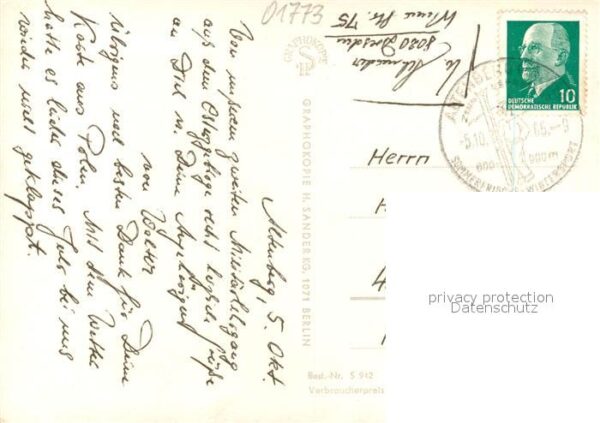 01773
W. Schneider
8020 Dresden
Wiener Str. 75
DEUTSCHE
DEMOKRATISCHE REPUBLIK
10
ALTENBERG
-5.10. 65.-
600 900m
SOMMERFRISCHE WINTERSPORT
Herrn
privacy protection
Datenschutz
GRAPHOKOPIE
GRAPHOKOPIE H. SANDER KG, 1071 BERLIN
Best.-Nr. S 942
Verbraucherpreis
Altenberg, 5. Okt.
Von unserem zweiten
aus dem Osterzgebirge recht herzliche Grüße
an Dich u. Deine Angehörigen
von
Übrigens noch besten Dank für Deine
Karte aus Polen. Mit dem Wetter
hatte es leider dieses Jahr bei uns
wieder nicht geklappt.